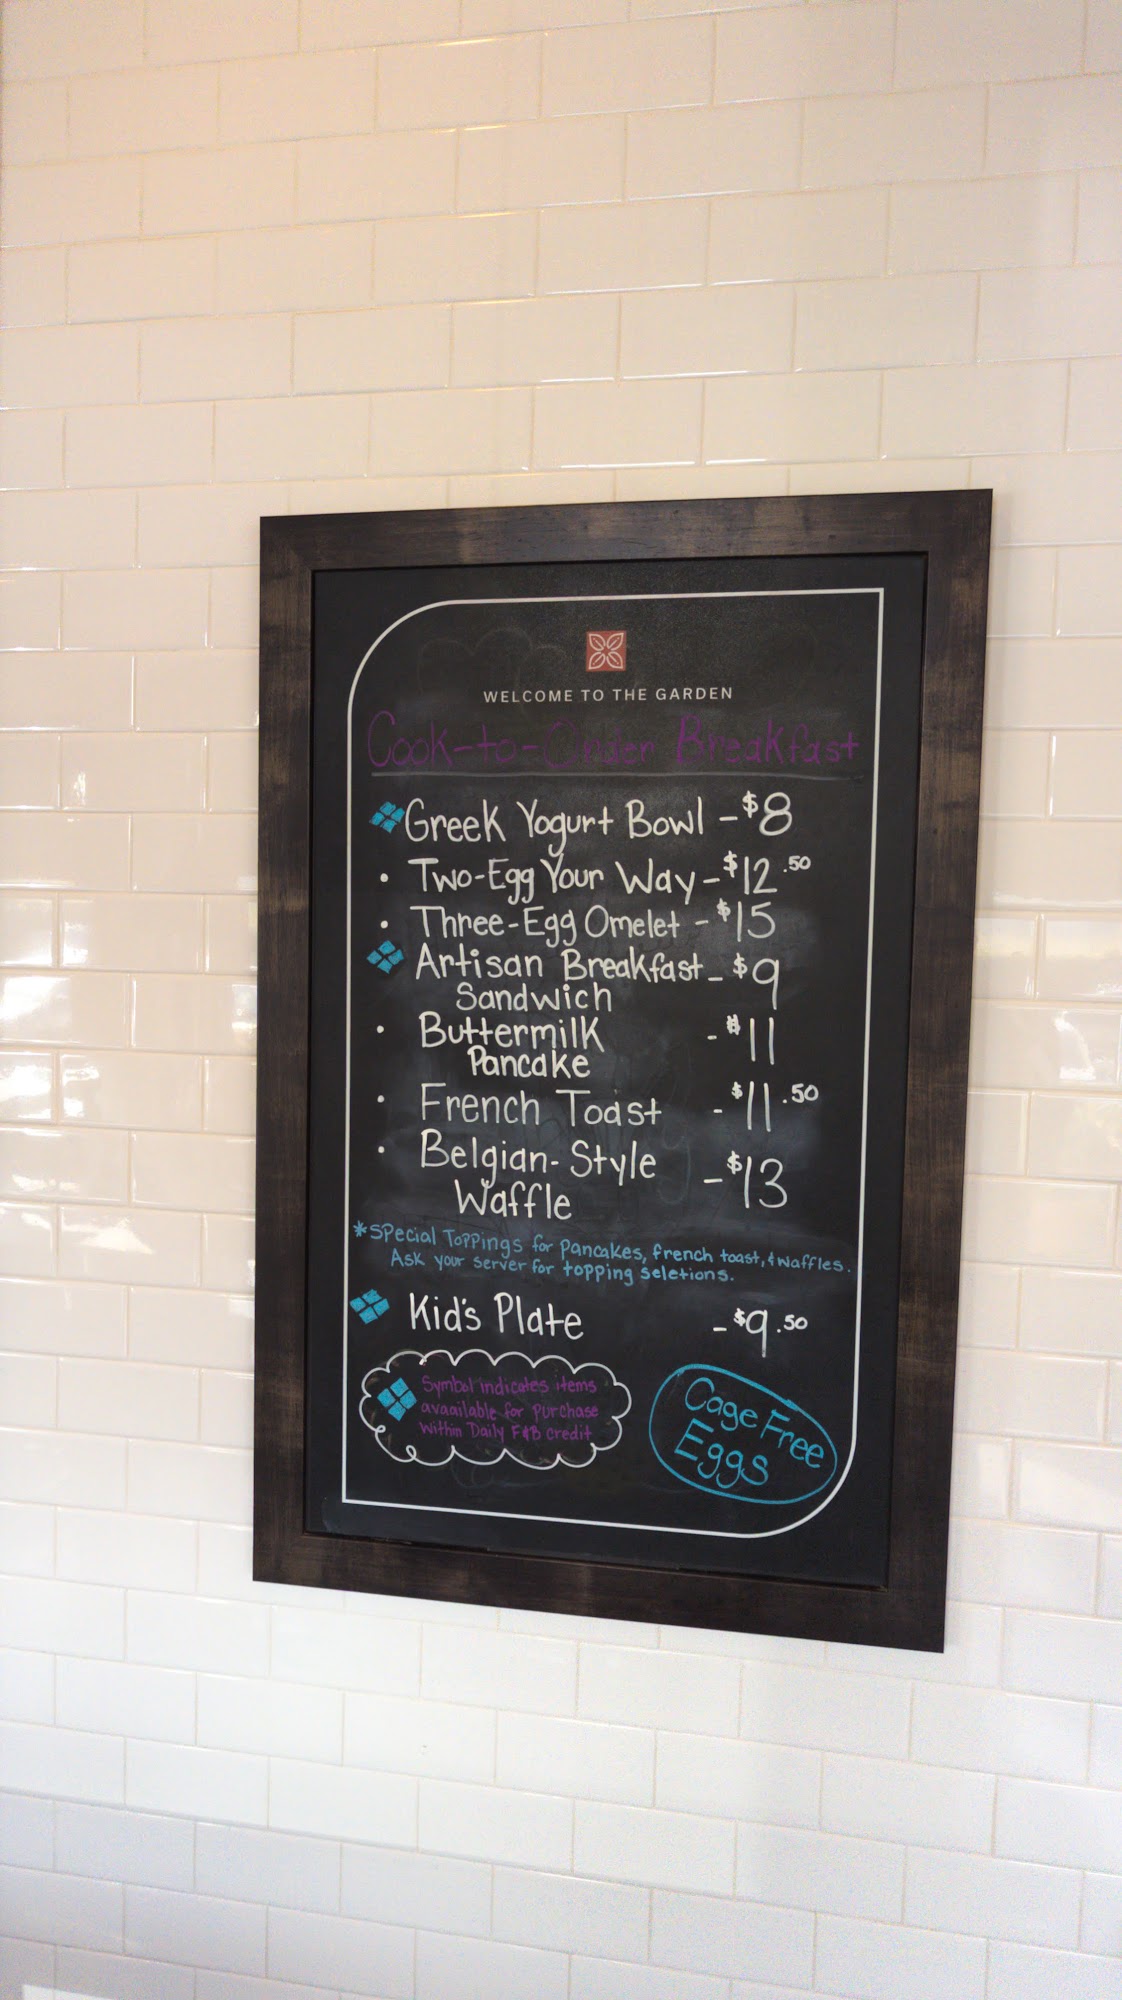 WELCOME TO THE GARDEN
Cook-to-Order Breakfast
Greek Yogurt Bowl - $8
• Two-Egg Your Way - $12.50
• Three-Egg Omelet - $15
Artisan Breakfast - $9
Sandwich
• Buttermilk - $11
Pancake
• French Toast - $11.50
• Belgian-Style - $13
Waffle
*Special Toppings for pancakes, french toast, & waffles.
Ask your server for topping seletions.
Kid's Plate - $9.50
Symbol indicates items
avaailable for purchase
within Daily F&B credit
Cage Free
Eggs